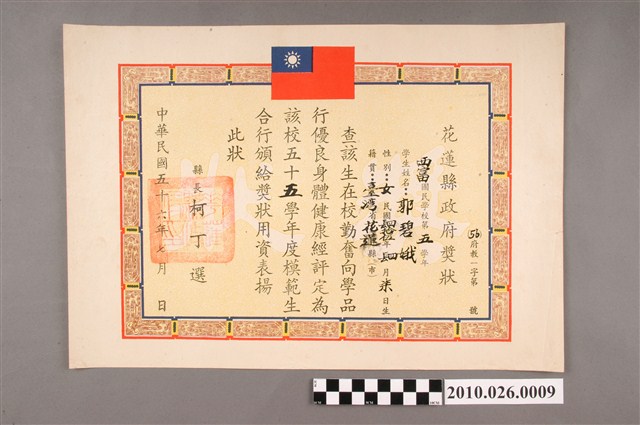 花蓮縣政府獎狀
(56)府教一字第　號
西富國民學校第五學年
學生姓名：郭碧娥
性別：女　民國　年　月　日生
籍貫：臺灣省花蓮縣(市)
查該生在校勤奮向學品
行優良身體健康經評定為
該校五十五學年度模範生
合行頒給獎狀用資表揚
此狀
縣長　柯丁選
中華民國五十六年七月　日
2010.026.0009